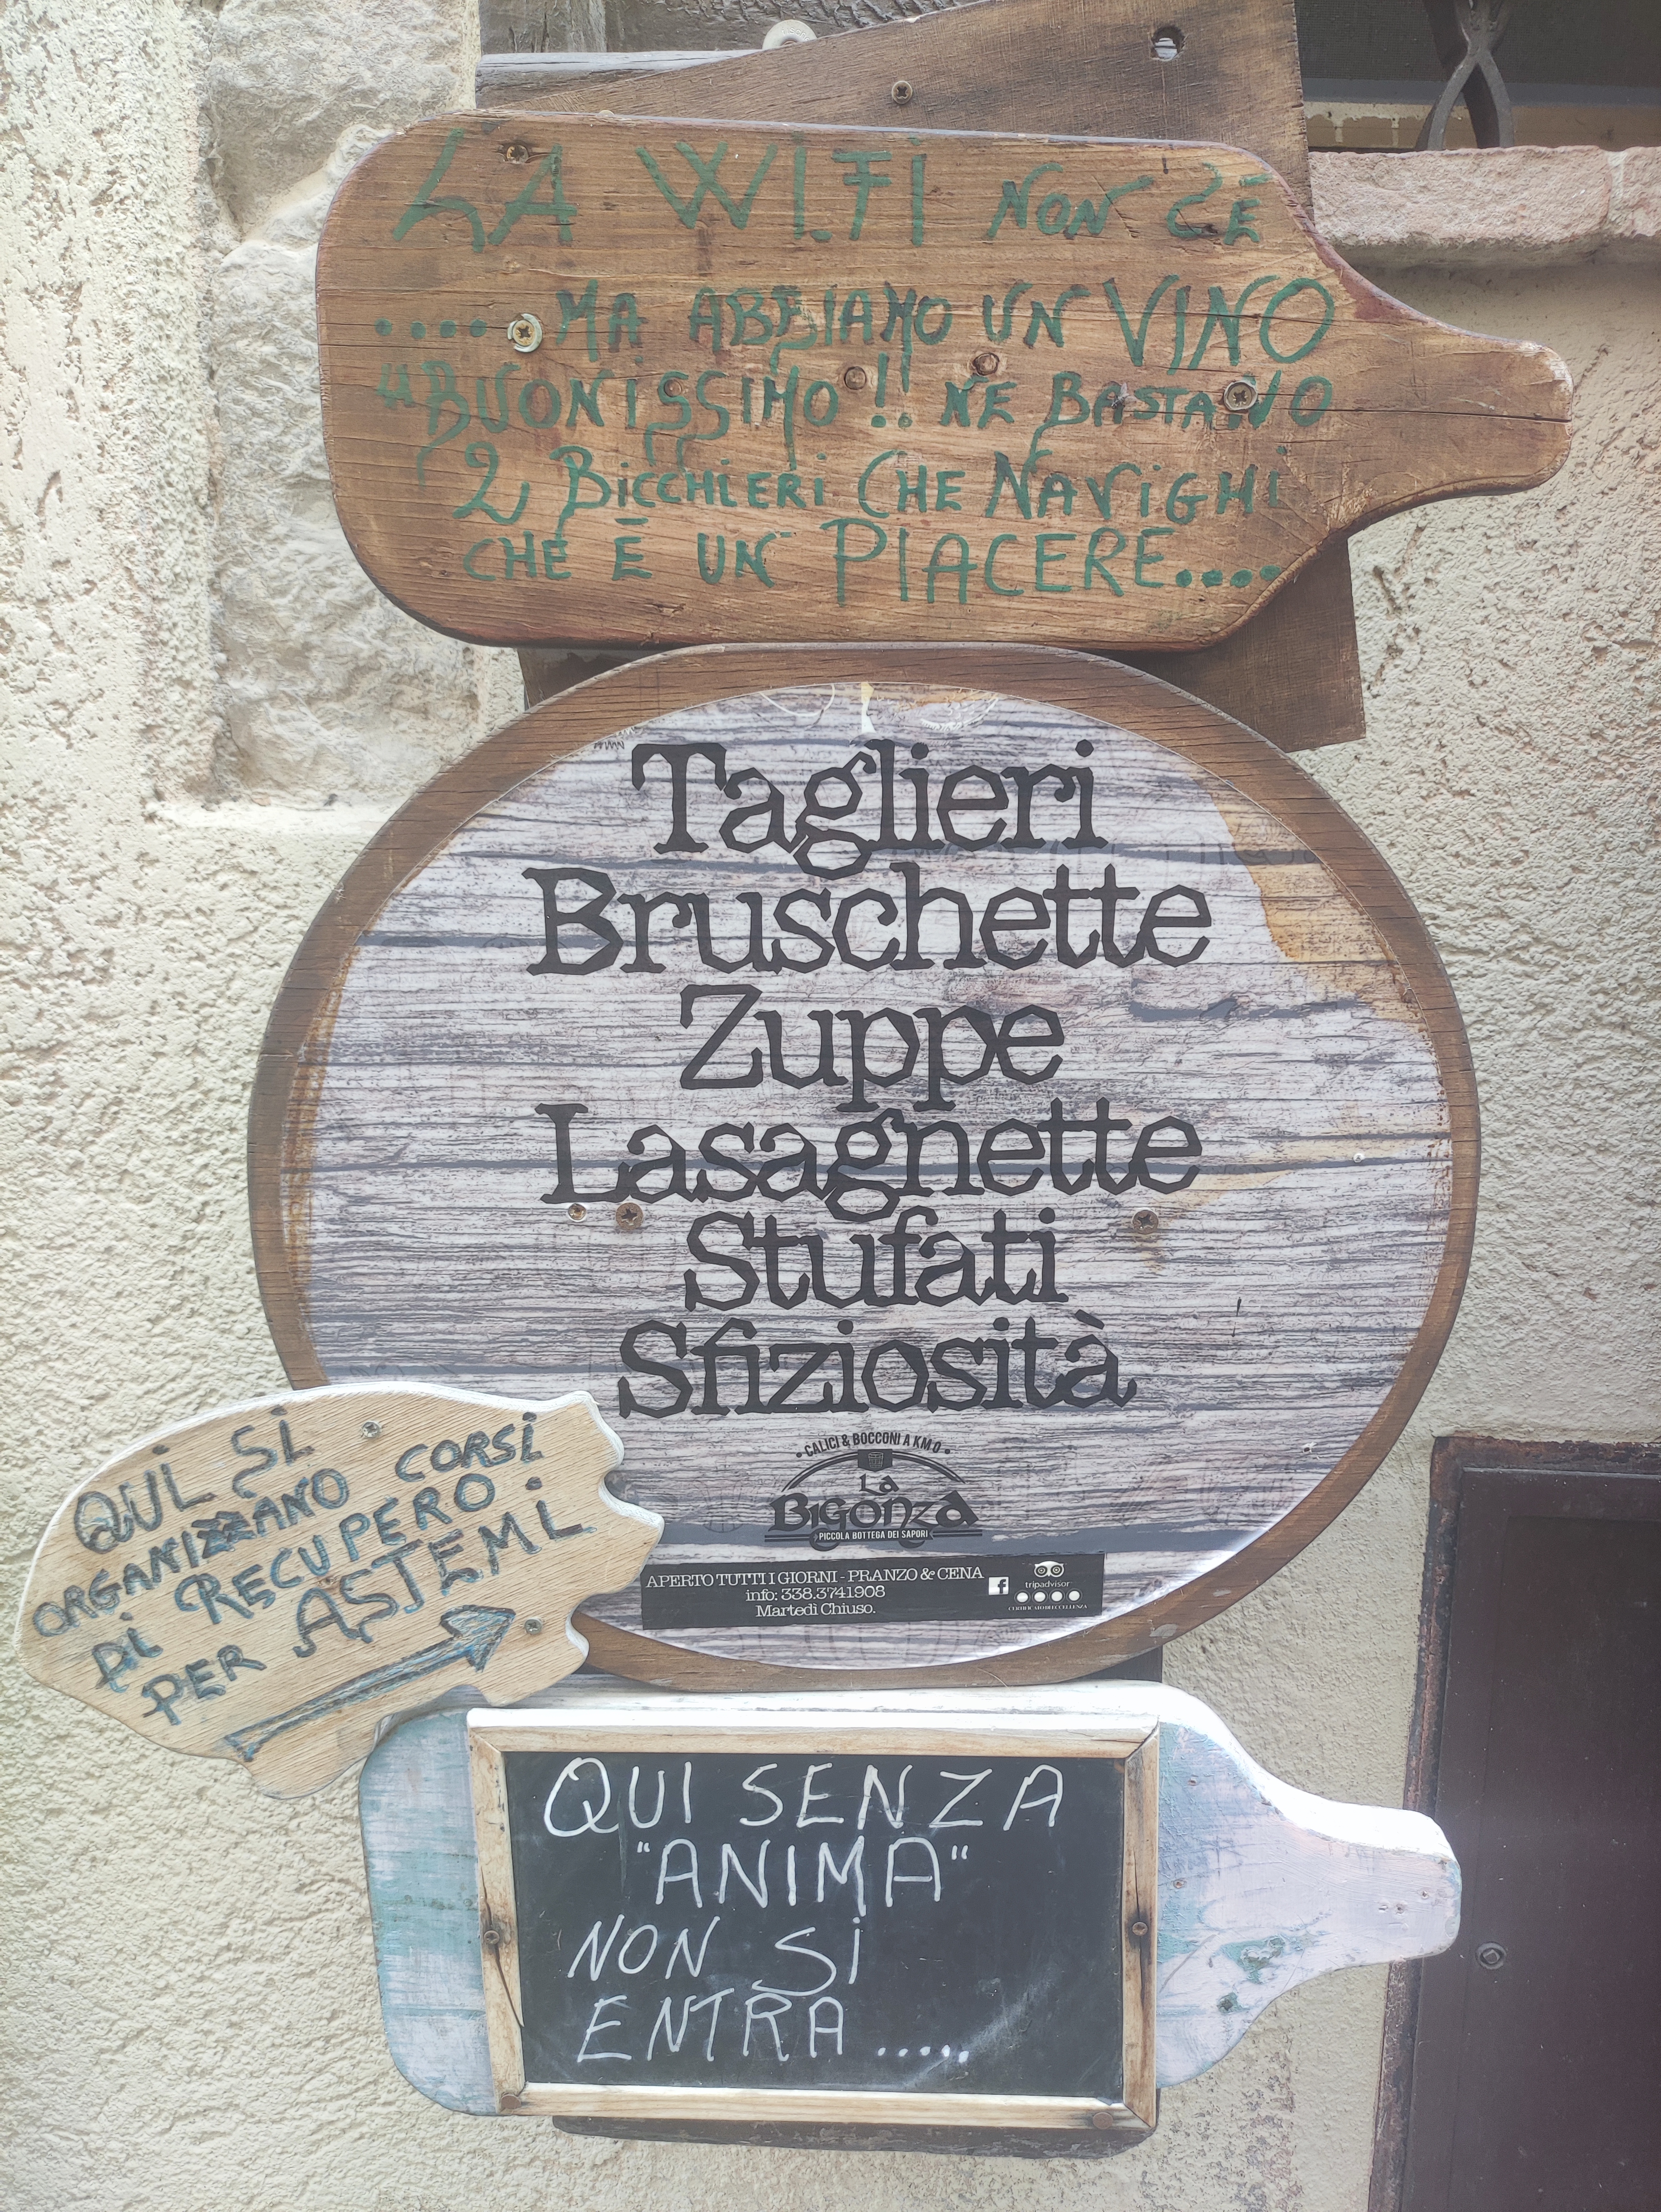 LA WIFI NON CÈ
.... MA ABBIAMO UN VINO
"BUONISSIMO!! NE BASTANO
2 BICCHIERI CHE NAVIGHI
CHE È UN PIACERE....
Taglieri
Bruschette
Zuppe
Lasagnette
Stufati
Sfiziosità
• CALICI & BOCCONI A KM 0 •
LA
BIGONZA
PICCOLA BOTTEGA DEI SAPORI
APERTO TUTTI I GIORNI - PRANZO & CENA
info: 338.3741908
Martedì Chiuso.
f
tripadvisor
CERTIFICATO DI ECCELLENZA
QUI SI
ORGANIZZANO CORSI
DI RECUPERO
PER ASTEMI
QUI SENZA
"ANIMA"
NON SI
ENTRA .....